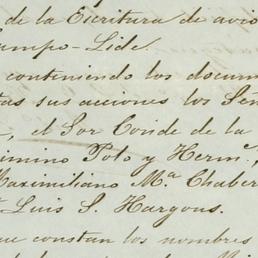 de la Escritura de avio
ampo-Lide.
conteniendo los docum
tas sus acciones los Señ
, el Sor Conde de la
imino Polo y Herm.ª,
Maximiliano M.ª Chaber
Luis S. Hargous.
ue constan los nombres